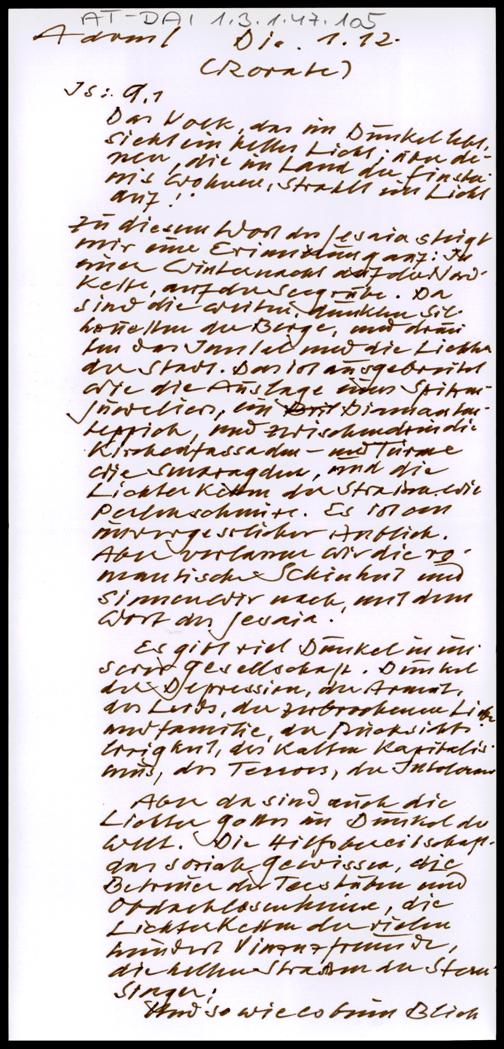 AT-DAI 1.3.1.47.105
Advent Die. 1.12.
(Rorate)
Is: 9,1
Das Volk, das im Dunkel lebt,
sieht ein helles Licht; über de-
nen, die im Land der Finster-
nis wohnen, strahlt ein Licht
auf!
Zu diesem Wort des Jesaia steigt
mir eine Erinnerung auf: In
einer Winternacht auf der Nord-
kette, auf der Seegrube. Da
sind die weiten, dunklen Sil-
houetten der Berge, und drun-
ten das Inntal und die Lichter
der Stadt. Das ist ausgebreitet
wie die Auslage eines Spitzen-
juweliers, ein Diamanten-
teppich, und zwischendrin die
Kirchenfassaden- und Türme
wie Smaragden, und die
Lichterketten der Strassen wie
Perlenschnüre. Es ist ein
unvergesslicher Anblick.
Aber verlassen wir die ro-
mantische Schönheit und
sinnen wir nach, mit dem
Wort des Jesaia.
Es gibt viel Dunkel in un-
serer Gesellschaft. Dunkel
der Depression, der Armut,
des Leids, der zerbrochenen Liebe
und Familie, der Rücksichts-
losigkeit, des kalten Kapitalis-
mus, des Terrors, der Intoleranz
Aber da sind auch die
Lichter Gottes im Dunkel der
Welt. Die Hilfsbereitschaft,
das soziale Gewissen, die
Betreuer der Teestuben und
Obdachlosenheime, die
Lichterketten der vielen
hundert Vinzenzfreunde,
die hellen Strassen der Stern-
singer;
Und so wie es beim Blick